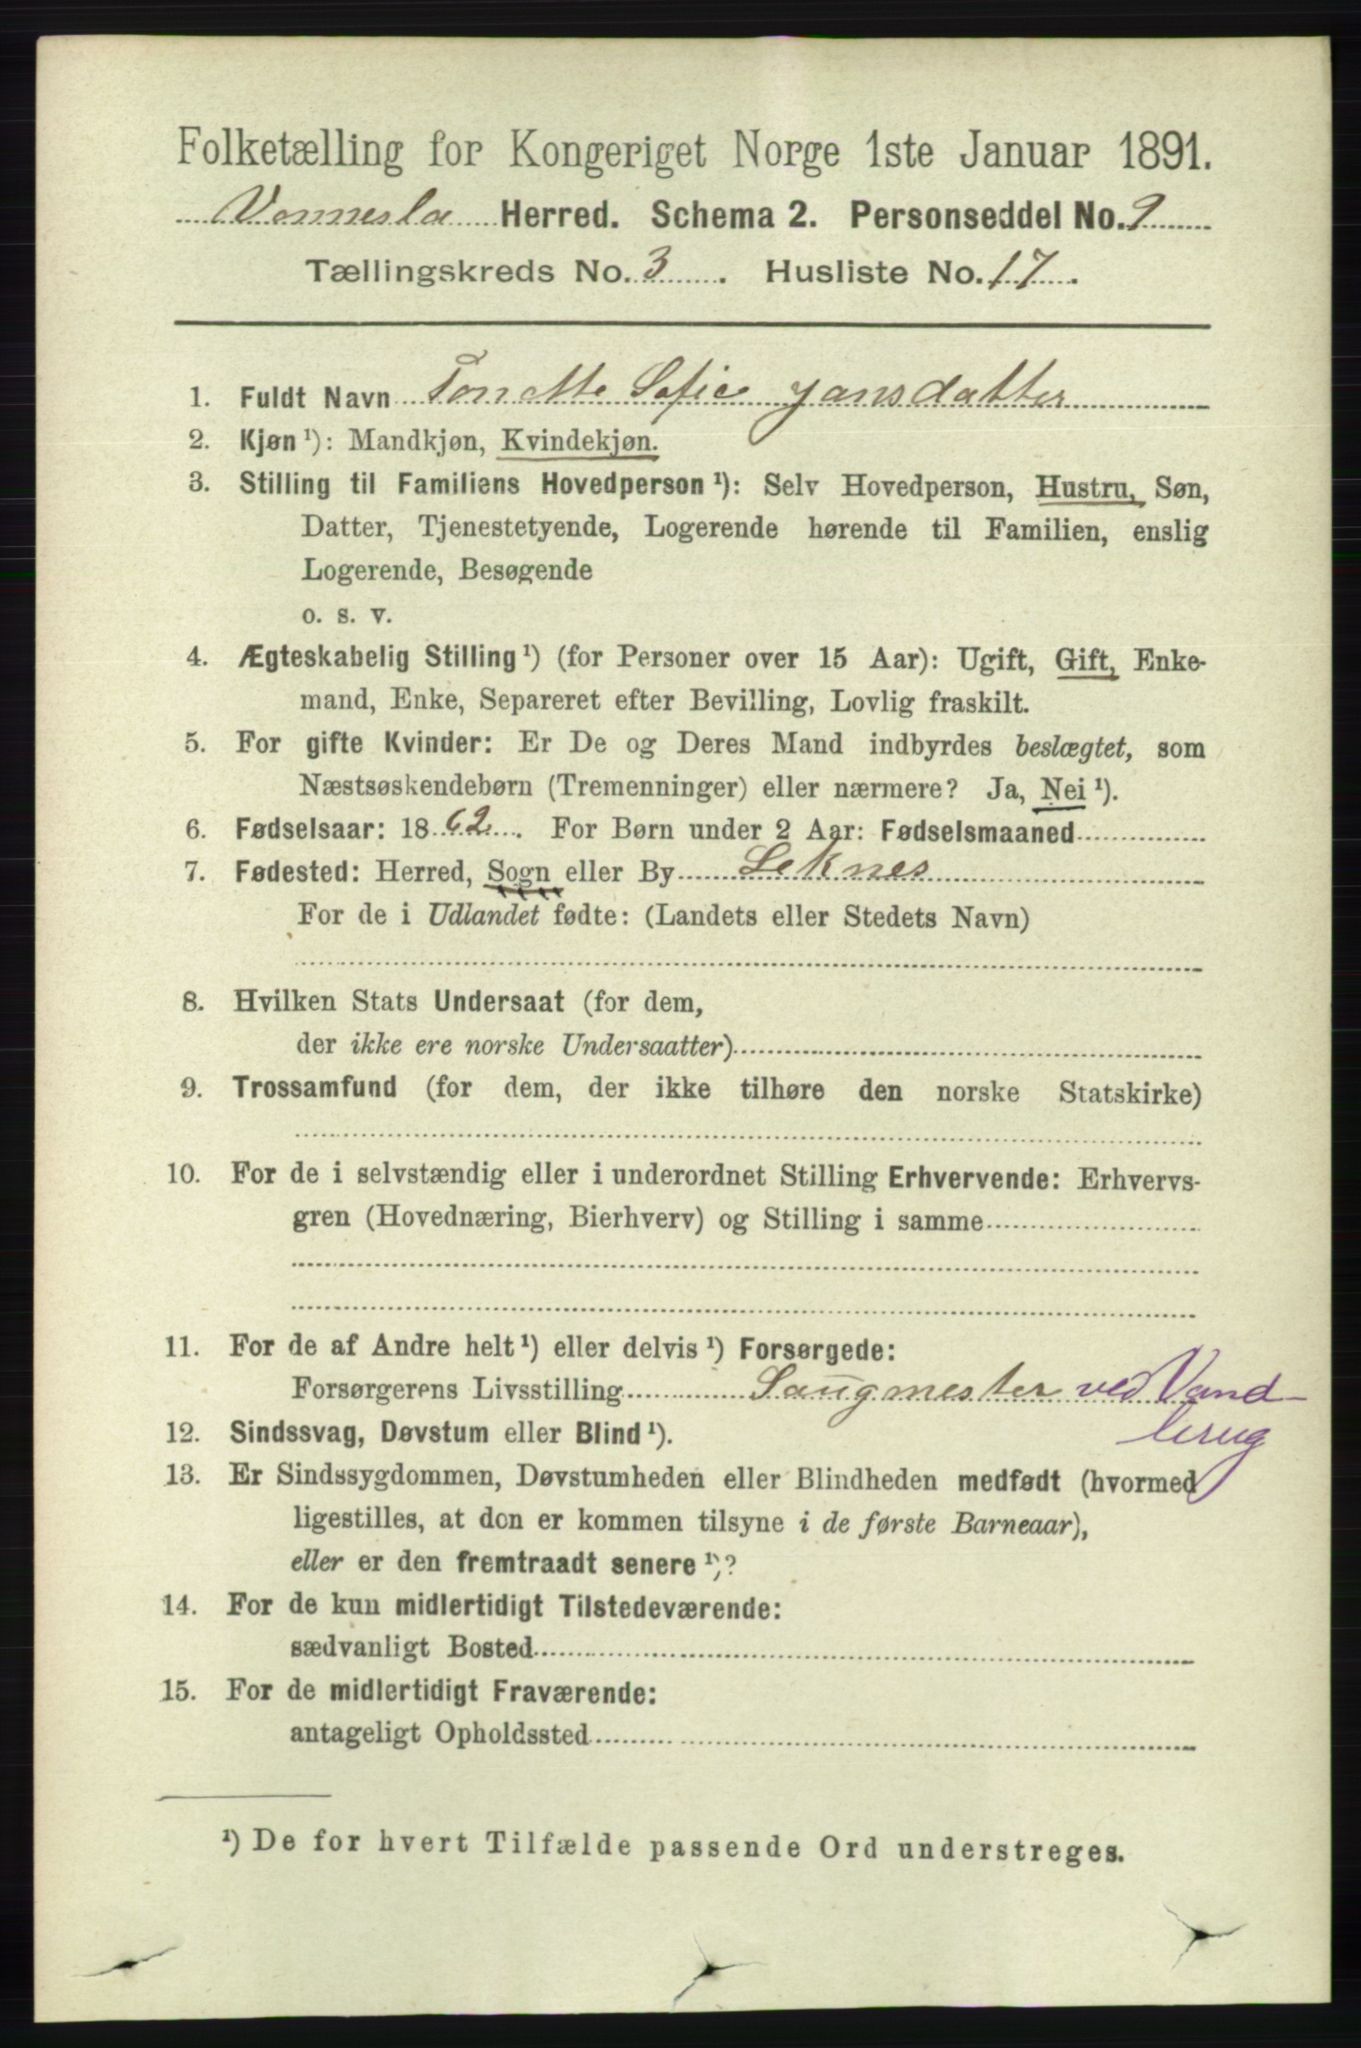 Folketælling for Kongeriget Norge 1ste Januar 1891.
Vennesla Herred. Schema 2. Personseddel No. 9
Tællingskreds No. 3. Husliste No. 17.
1. Fuldt Navn Tonette Sofie Jansdatter
2. Kjøn ¹): Mandkjøn, Kvindekjøn.
3. Stilling til Familiens Hovedperson ¹): Selv Hovedperson, Hustru, Søn,
Datter, Tjenestetyende, Logerende hørende til Familien, enslig
Logerende, Besøgende
o. s. v.
4. Ægteskabelig Stilling ¹) (for Personer over 15 Aar): Ugift, Gift, Enke-
mand, Enke, Separeret efter Bevilling, Lovlig fraskilt.
5. For gifte Kvinder: Er De og Deres Mand indbyrdes beslægtet, som
Næstsøskendebørn (Tremenninger) eller nærmere? Ja, Nei ¹).
6. Fødselsaar: 1862. For Børn under 2 Aar: Fødselsmaaned
7. Fødested: Herred, Sogn eller By Leknes
For de i Udlandet fødte: (Landets eller Stedets Navn)
8. Hvilken Stats Undersaat (for dem,
der ikke ere norske Undersaatter)
9. Trossamfund (for dem, der ikke tilhøre den norske Statskirke)
10. For de i selvstændig eller i underordnet Stilling Erhvervende: Erhvervs-
gren (Hovednæring, Bierhverv) og Stilling i samme
11. For de af Andre helt ¹) eller delvis ¹) Forsørgede:
Forsørgerens Livsstilling Saugmester ved Vand
brug
12. Sindssvag, Døvstum eller Blind ¹).
13. Er Sindssygdommen, Døvstumheden eller Blindheden medfødt (hvormed
ligestilles, at den er kommen tilsyne i de første Barneaar),
eller er den fremtraadt senere ¹)?
14. For de kun midlertidigt Tilstedeværende:
sædvanligt Bosted
15. For de midlertidigt Fraværende:
antageligt Opholdssted
¹) De for hvert Tilfælde passende Ord understreges.